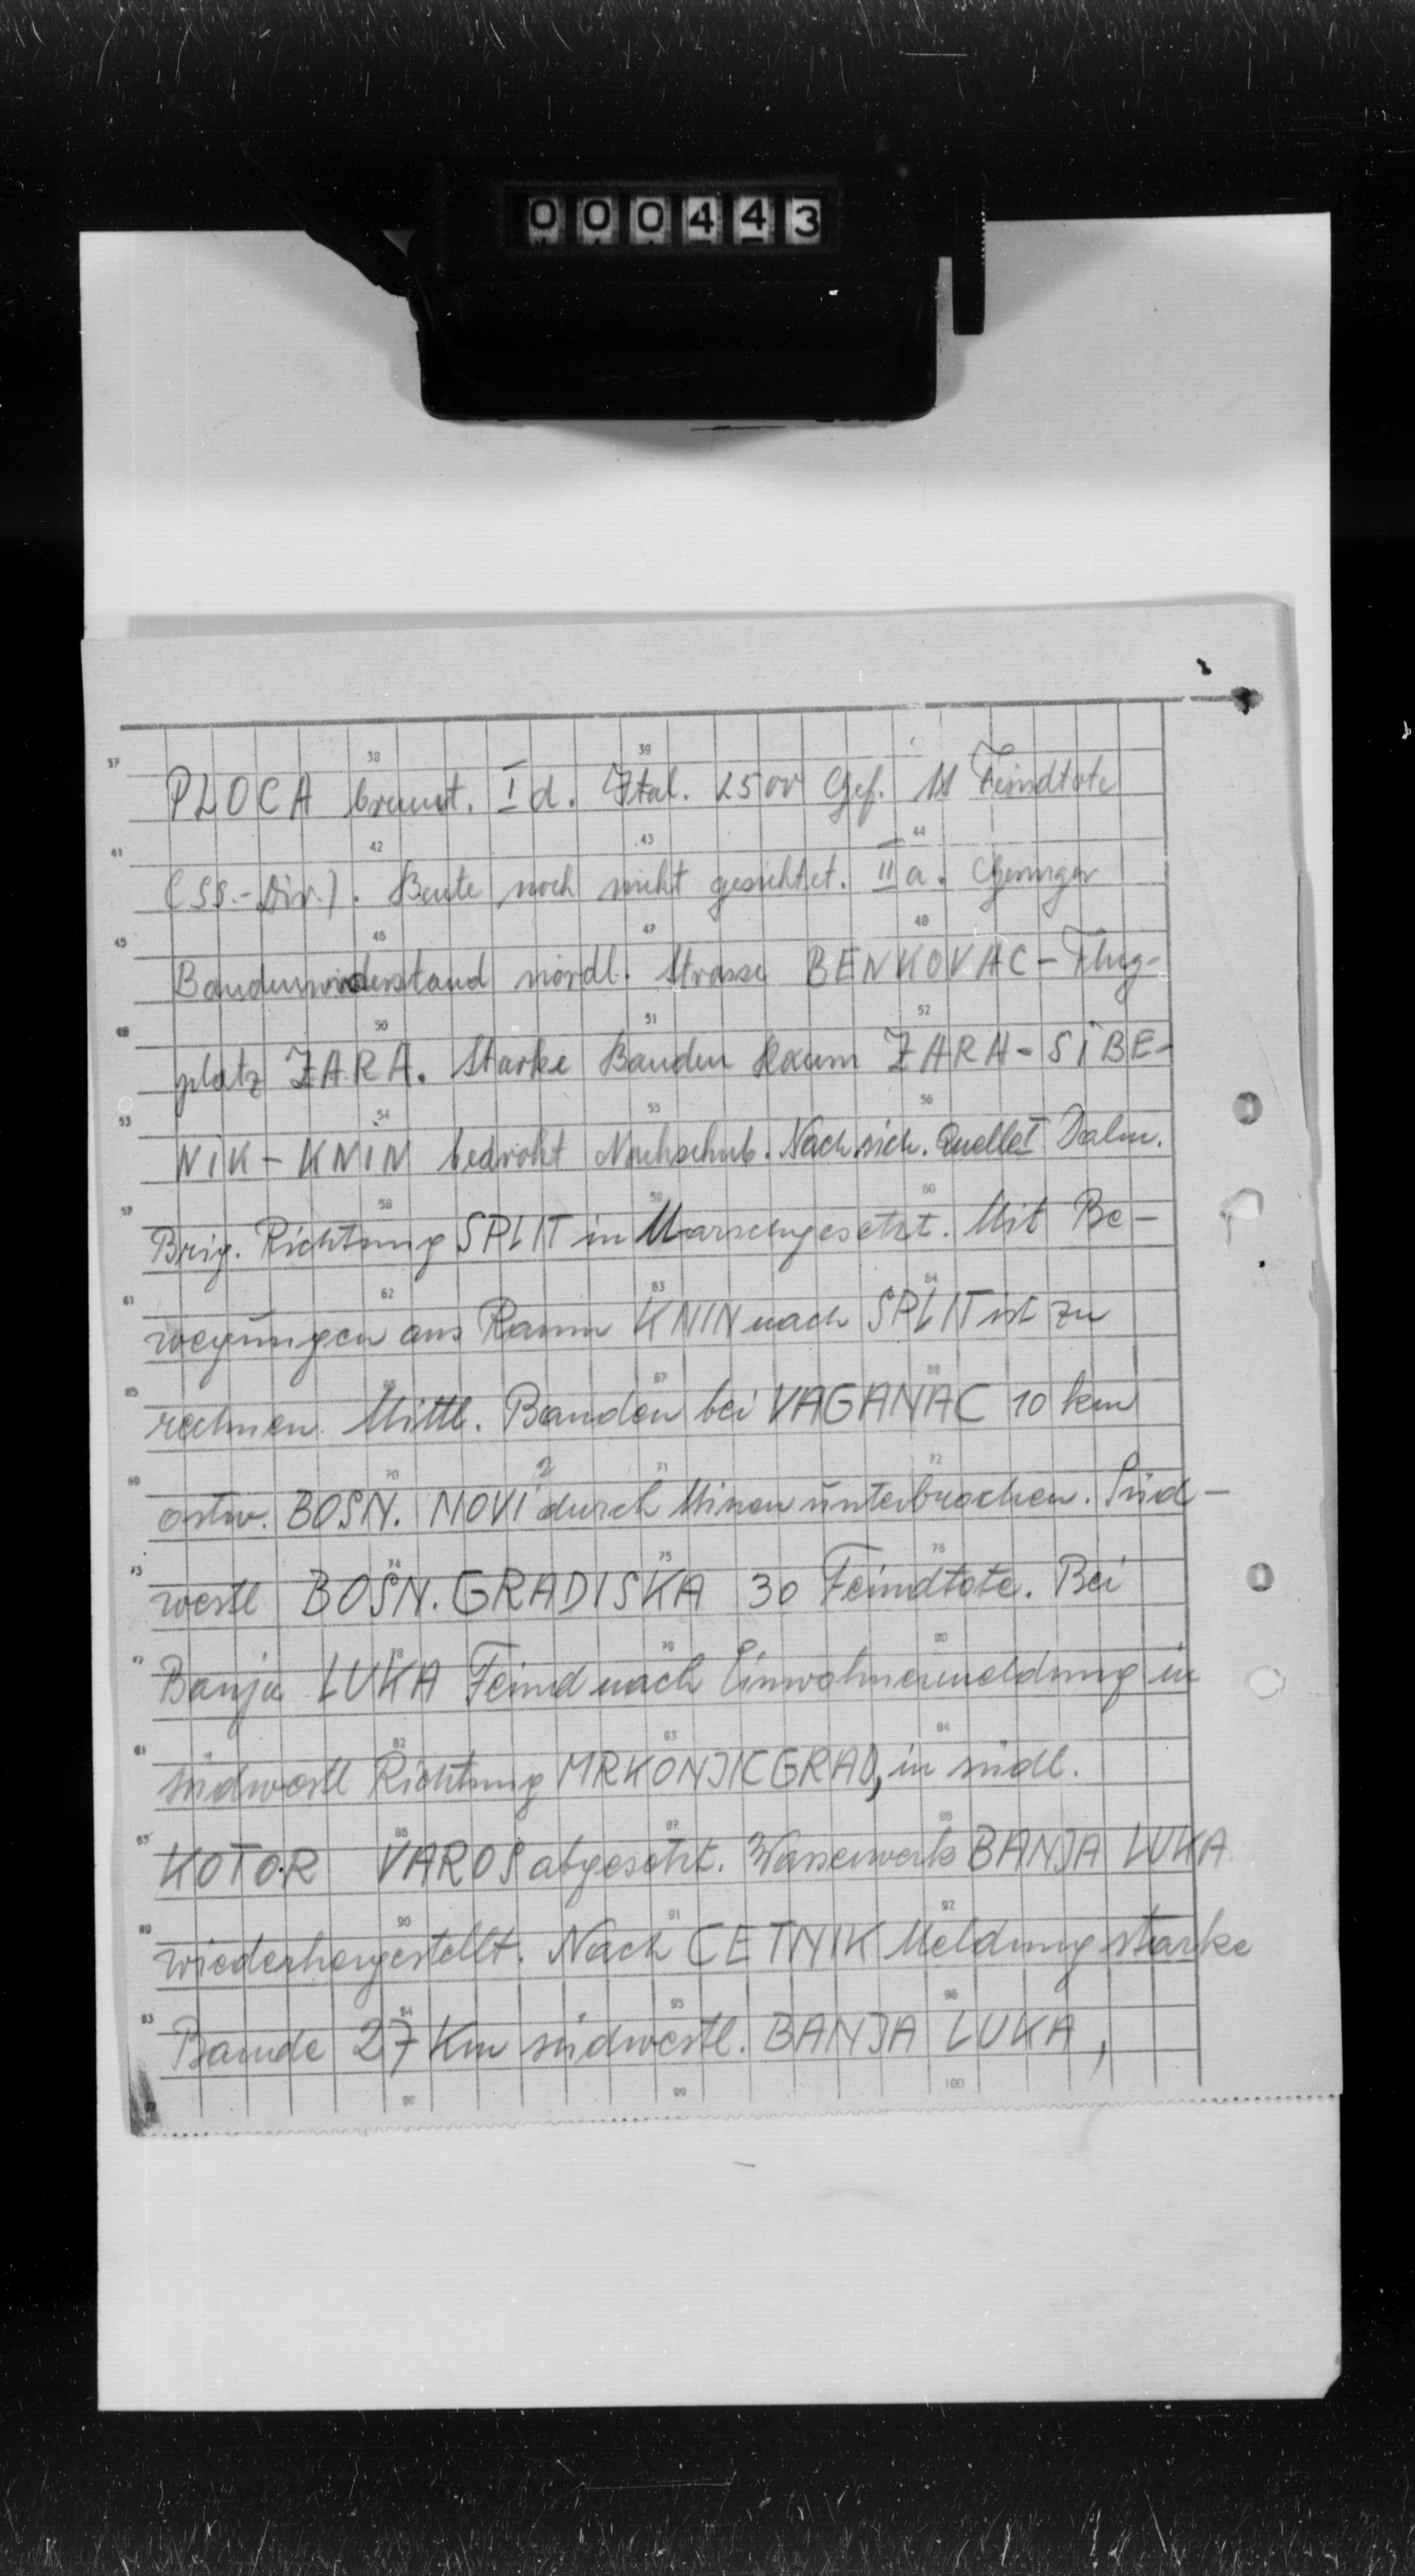 000443
37 38 39
PLOCA brennt. I d. Ital. 2500 Gef. 11 Feindtote
41 42 43 44
(SS.-Div.). Beute noch nicht gesichtet. II a. Geringer
45 46 47 48
Bandenwiderstand nördl. Strasse BENKOVAC - Flug-
49 50 51 52
platz ZARA. Starke Banden Raum ZARA - SIBE-
53 54 55 56
NIK - KNIN bedroht Nachschub. Nach sich. Quelle I Dalm.
57 58 59 60
Brig. Richtung SPLIT in Marsch gesetzt. Mit Be-
61 62 63 64
wegungen aus Raum KNIN nach SPLIT ist zu
65 66 67 68
rechnen. Mittl. Banden bei VAGANAC 10 km
69 70 2 71 72
ostw. BOSN. NOVI durch Minen unterbrochen. Süd-
73 74 75 76
westl BOSN. GRADISKA 30 Feindtote. Bei
77 78 79 80
Banja LUKA Feind nach Einwohnermeldung in
81 82 83 84
südwestl Richtung MRKONJICGRAD, in südl.
85 86 87 88
KOTOR VAROS abgesetzt. Wasserwerk BANJA LUKA
89 90 91 92
wiederhergestellt. Nach CETNIK Meldung starke
93 94 95 96
Bande 27 Km südwestl. BANJA LUKA,
98 99 100